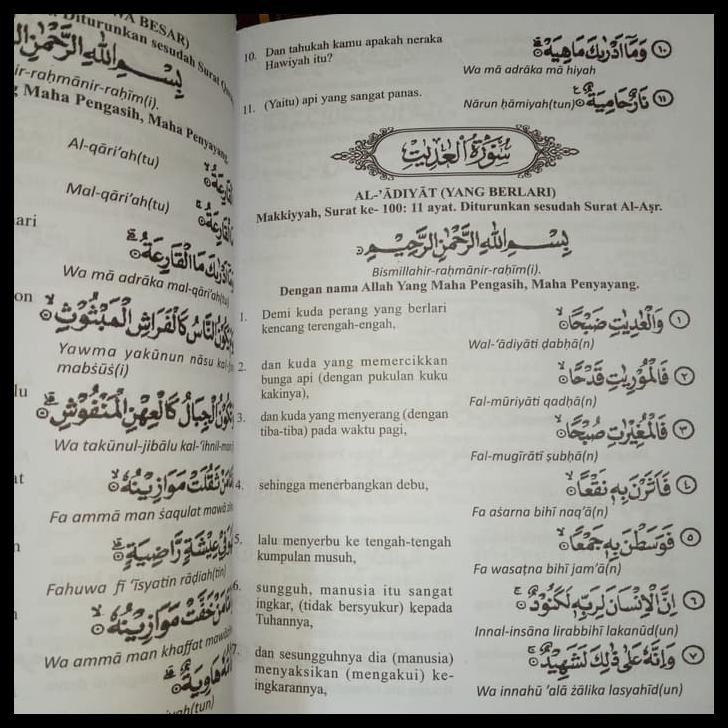 BESAR)
Diturunkan sesudah Surat
بِسْمِ اللّٰهِ الرَّحْمٰنِ
ir-raḥmānir-raḥīm(i).
Maha Pengasih, Maha Penyayang.
Al-qāri’ah(tu)
Mal-qāri’ah(tu)
ari
Wa mā adrāka mal-qāri’ah(tu)
on
Yawma yakūnun nāsu
mabṡūṡ(i)
lu
Wa takūnul-jibālu kal-‘ihnil-
at
Fa ammā man ṡaqulat
Fahuwa fī ‘īsyatin rāḍiah(tin)
Wa ammā man khaffat
10. Dan tahukah kamu apakah neraka
Hawiyah itu?
وَمَآ اَدْرٰىكَ مَاهِيَهْ ۗ ۝١٠
Wa mā adrāka mā hiyah
11. (Yaitu) api yang sangat panas.
نَارٌ حَامِيَةٌ ࣖ ۝١١
Nārun ḥāmiyah(tun)
سُوْرَةُ الْعٰدِيٰتِ
AL-’ĀDIYĀT (YANG BERLARI)
Makkiyyah, Surat ke- 100: 11 ayat. Diturunkan sesudah Surat Al-Aṣr.
بِسْمِ اللّٰهِ الرَّحْمٰنِ الرَّحِيْمِ
Bismillahir-raḥmānir-raḥīm(i).
Dengan nama Allah Yang Maha Pengasih, Maha Penyayang.
1. Demi kuda perang yang berlari
kencang terengah-engah,
وَالْعٰدِيٰتِ ضَبْحًا ۙ ۝١
Wal-‘ādiyāti ḍabḥā(n)
2. dan kuda yang memercikkan
bunga api (dengan pukulan kuku
kakinya),
فَالْمُوْرِيٰتِ قَدْحًا ۙ ۝٢
Fal-mūriyāti qadḥā(n)
3. dan kuda yang menyerang (dengan
tiba-tiba) pada waktu pagi,
فَالْمُغِيْرٰتِ صُبْحًا ۙ ۝٣
Fal-mugīrāti ṣubḥā(n)
4. sehingga menerbangkan debu,
فَاَثَرْنَ بِهٖ نَقْعًا ۙ ۝٤
Fa aṡarna bihī naq’ā(n)
5. lalu menyerbu ke tengah-tengah
kumpulan musuh,
فَوَسَطْنَ بِهٖ جَمْعًا ۙ ۝٥
Fa wasaṭna bihī jam’ā(n)
6. sungguh, manusia itu sangat
ingkar, (tidak bersyukur) kepada
Tuhannya,
اِنَّ الْاِنْسَانَ لِرَبِّهٖ لَكَنُوْدٌ ۚ ۝٦
Innal-insāna lirabbihī lakanūd(un)
7. dan sesungguhnya dia (manusia)
menyaksikan (mengakui) ke-
ingkarannya,
وَاِنَّهٗ عَلٰى ذٰلِكَ لَشَهِيْدٌ ۚ ۝٧
Wa innahū ‘alā żālika lasyahīd(un)